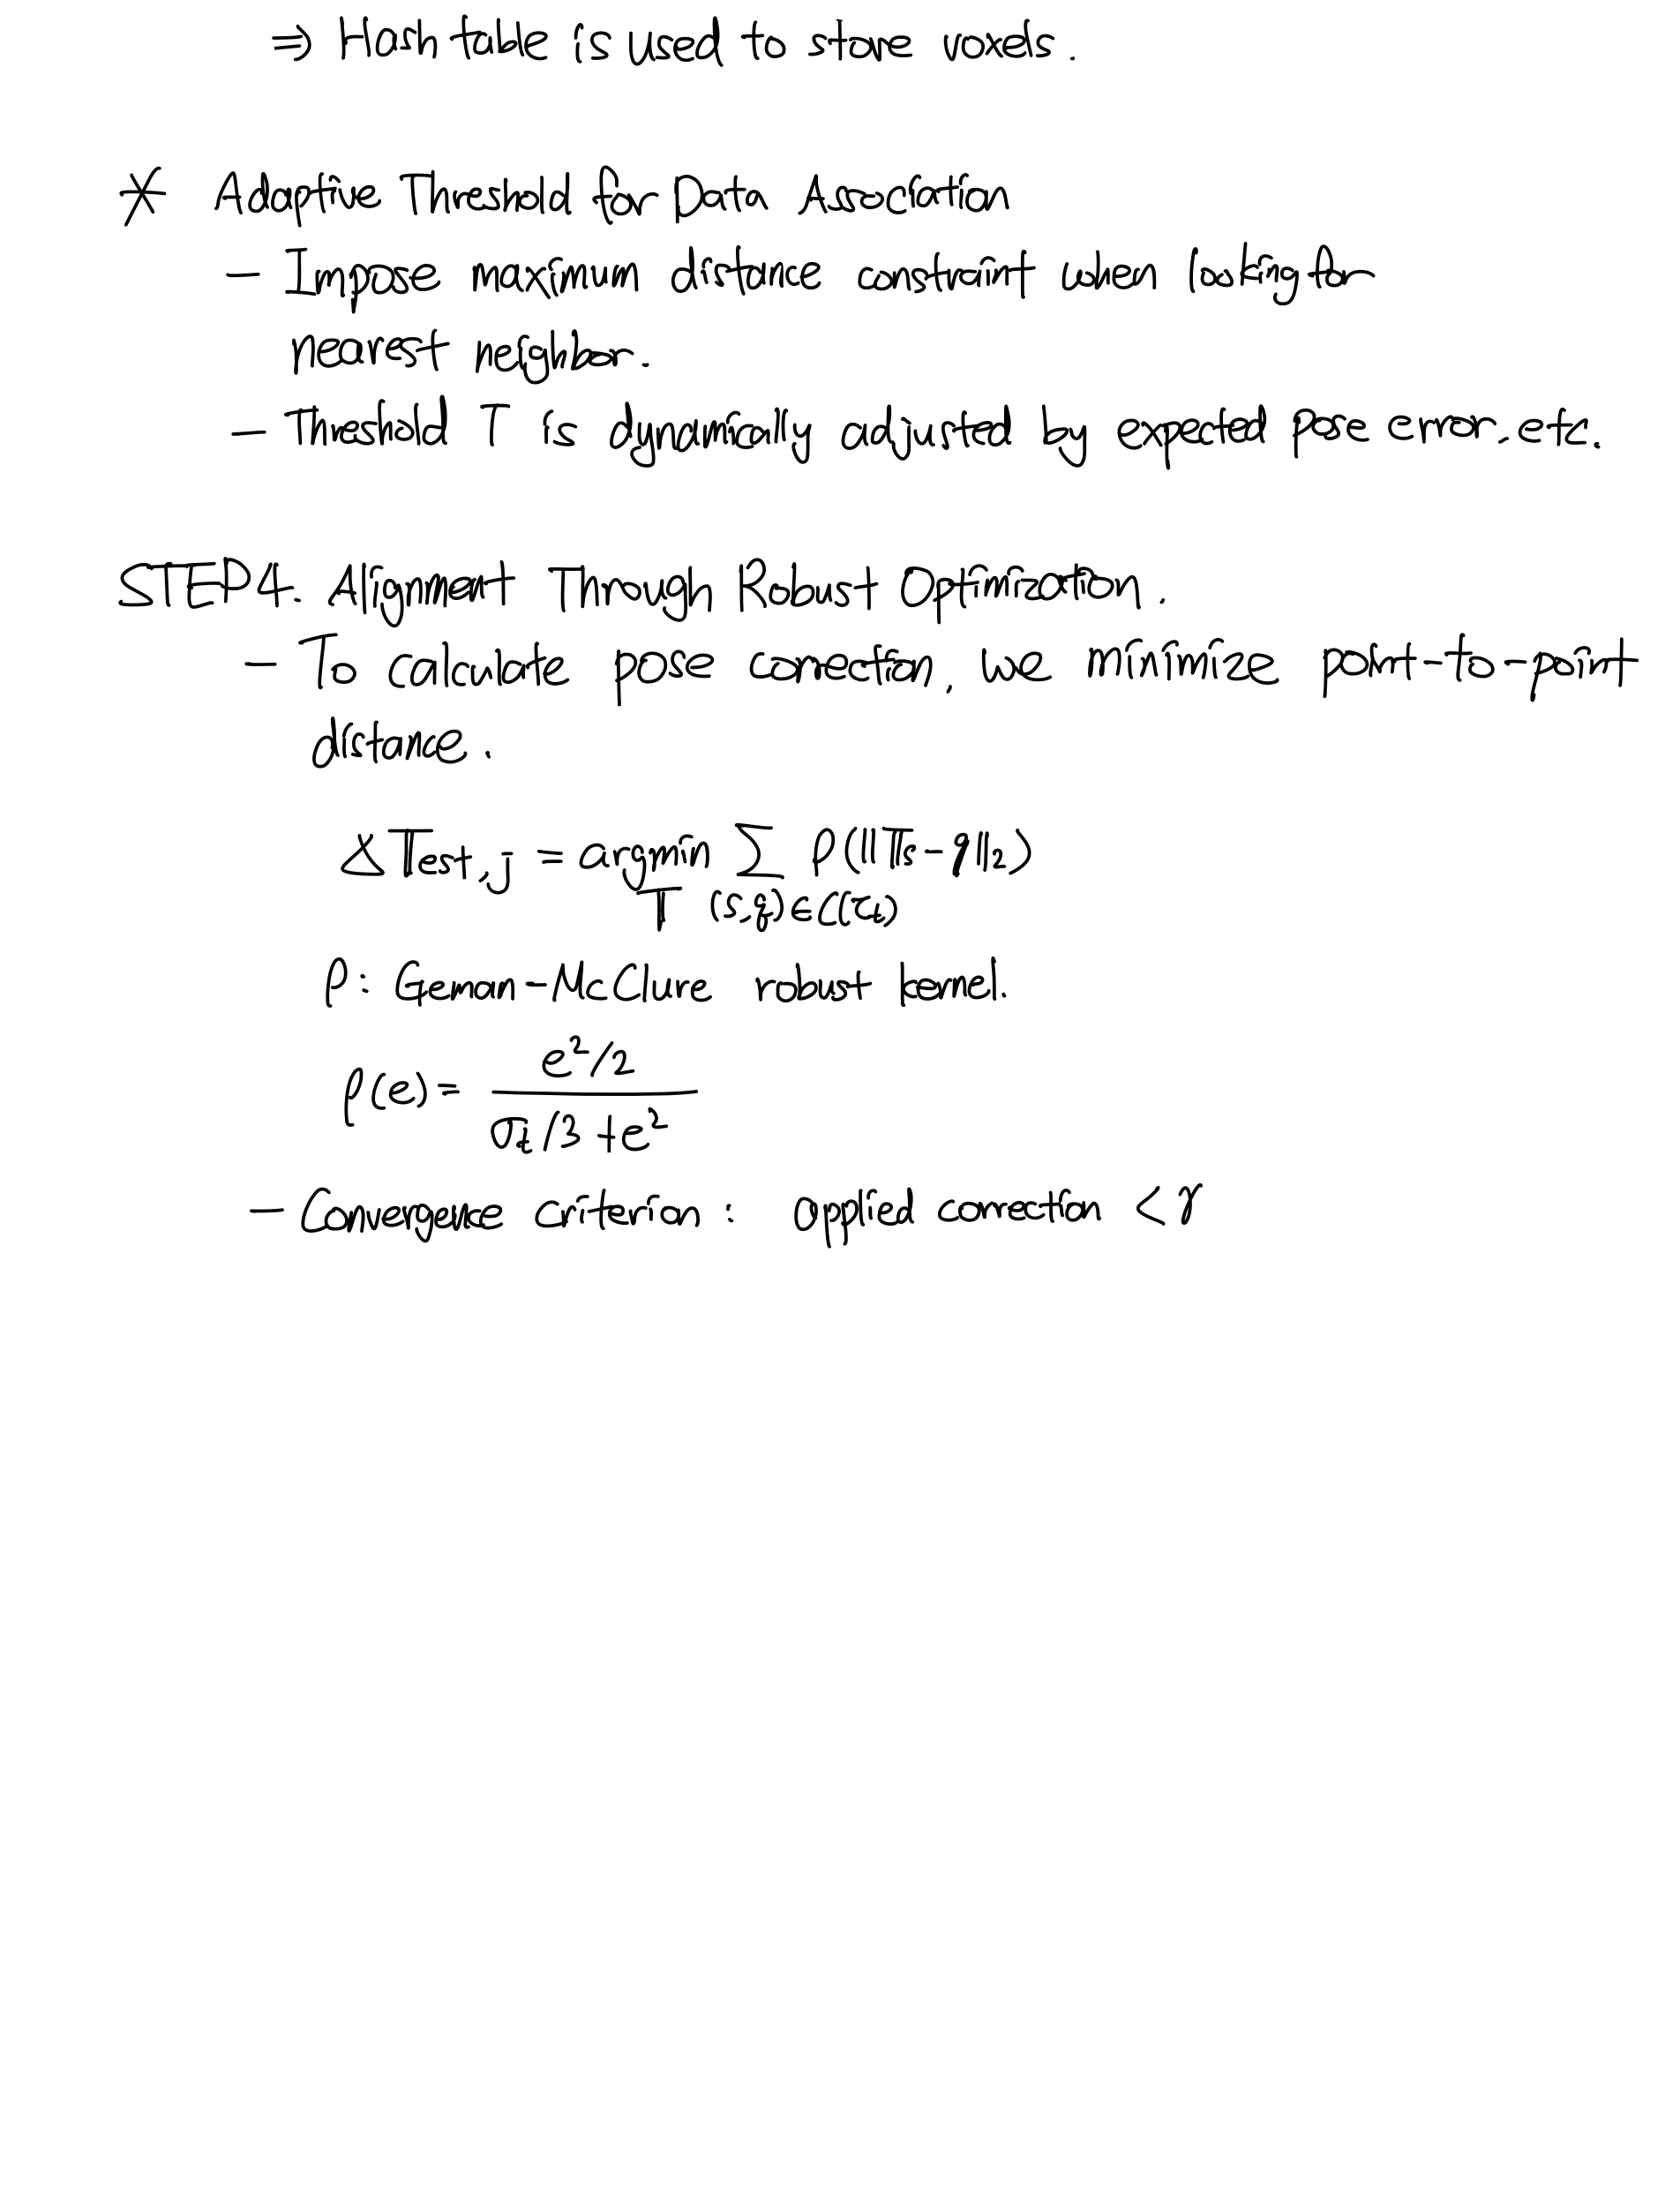 ⇒ Hash table is used to store voxels.
* Adaptive Threshold for Data Association
- Impose maximum distance constraint when looking for
nearest neighbor.
- Threshold τ is dynamically adjusted by expected pose error. etc.
STEP4. Alignment Through Robust Optimization.
- To calculate pose correction, we minimize point-to-point
distance.
ΔT_est,j = argmin ∑ ρ(||Ts-q||₂)
T (s,q)∈C(τₜ)
ρ: Geman-McClure robust kernel.
ρ(e) = (e²/2) / (σₜ/3 + e²)
- Convergence criterion : applied correction < γ